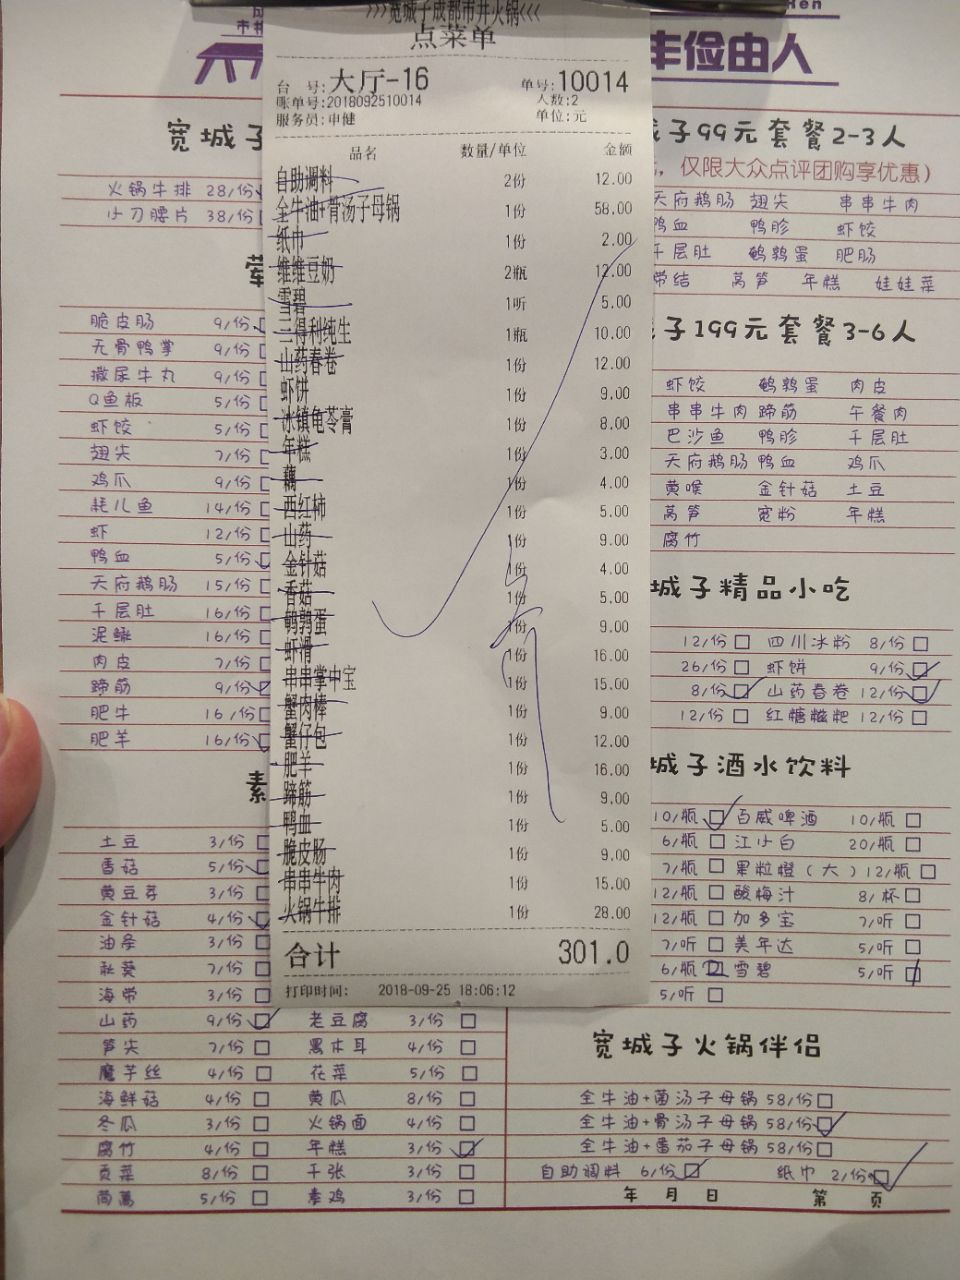 >>>宽城子成都市井火锅<<<
点菜单
台 号:大厅-16 单号:10014
账单号:2018092510014 人数:2
服务员:申健 单位:元
品名 数量/单位 金额
自助调料 2份 12.00
全牛油+骨汤子母锅 1份 58.00
纸巾 1份 2.00
维维豆奶 2瓶 12.00
雪碧 1听 5.00
三得利纯生 1瓶 10.00
山药春卷 1份 12.00
虾饼 1份 9.00
冰镇龟苓膏 1份 8.00
年糕 1份 3.00
藕 1份 4.00
西红柿 1份 5.00
山药 1份 9.00
金针菇 1份 4.00
香菇 1份 5.00
鹌鹑蛋 1份 9.00
虾滑 1份 16.00
串串掌中宝 1份 15.00
蟹肉棒 1份 9.00
蟹仔包 1份 12.00
肥羊 1份 16.00
蹄筋 1份 9.00
鸭血 1份 5.00
脆皮肠 1份 9.00
串串牛肉 1份 15.00
火锅牛排 1份 28.00
合计 301.0
打印时间: 2018-09-25 18:06:12
丰俭由人
宽城子
火锅牛排 28/份
小刀腰片 38/份
脆皮肠 9/份
无骨鸭掌 9/份
撒尿牛丸 9/份
Q鱼板 5/份
虾饺 5/份
翅尖 7/份
鸡爪 9/份
耗儿鱼 14/份
虾 12/份
鸭血 5/份
天府鹅肠 15/份
千层肚 16/份
泥鳅 16/份
肉皮 7/份
蹄筋 9/份
肥牛 16/份
肥羊 16/份
素
土豆 3/份
香菇 5/份
黄豆芽 3/份
金针菇 4/份
油条 3/份
秋葵 7/份
海带 3/份
山药 9/份 老豆腐 3/份
笋尖 7/份 黑木耳 4/份
魔芋丝 4/份 花菜 5/份
海鲜菇 4/份 黄瓜 8/份
冬瓜 3/份 火锅面 4/份
腐竹 4/份 年糕 3/份
贡菜 8/份 千张 3/份
茼蒿 5/份 素鸡 3/份
子99元套餐2-3人
，仅限大众点评团购享优惠）
天府鹅肠 翅尖 串串牛肉
鸭血 鸭胗 虾饺
千层肚 鹌鹑蛋 肥肠
带结 莴笋 年糕 娃娃菜
子199元套餐3-6人
虾饺 鹌鹑蛋 肉皮
串串牛肉 蹄筋 午餐肉
巴沙鱼 鸭胗 千层肚
天府鹅肠 鸭血 鸡爪
黄喉 金针菇 土豆
莴笋 宽粉 年糕
腐竹
城子精品小吃
12/份 四川冰粉 8/份
26/份 虾饼 9/份
8/份 山药春卷 12/份
12/份 红糖糍粑 12/份
城子酒水饮料
10/瓶 百威啤酒 10/瓶
6/瓶 江小白 20/瓶
7/瓶 果粒橙（大）12/瓶
12/瓶 酸梅汁 8/杯
12/瓶 加多宝 7/听
7/听 美年达 5/听
6/瓶 雪碧 5/听
5/听
宽城子火锅伴侣
全牛油+菌汤子母锅 58/份
全牛油+骨汤子母锅 58/份
全牛油+番茄子母锅 58/份
自助调料 6/份 纸巾 2/份
年 月 日 第 页